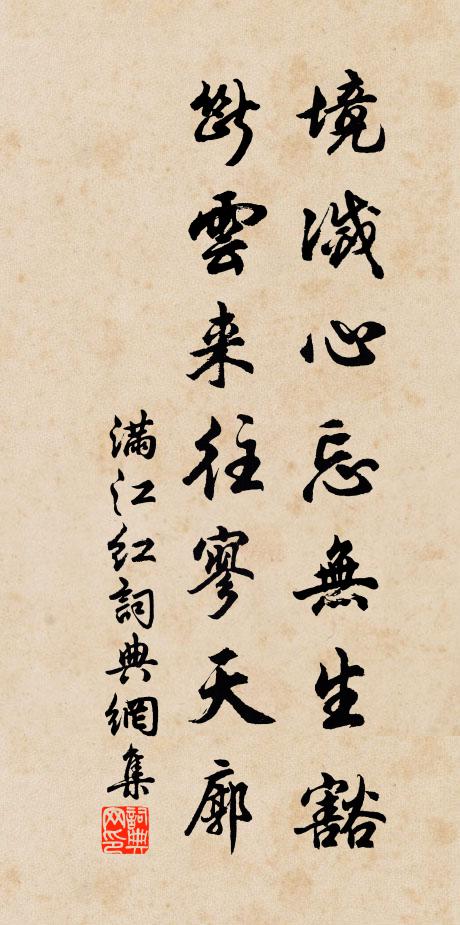 境滅心忘無生豁
斷雲来往寥天廓
滿江紅詞典網集
詞典網印